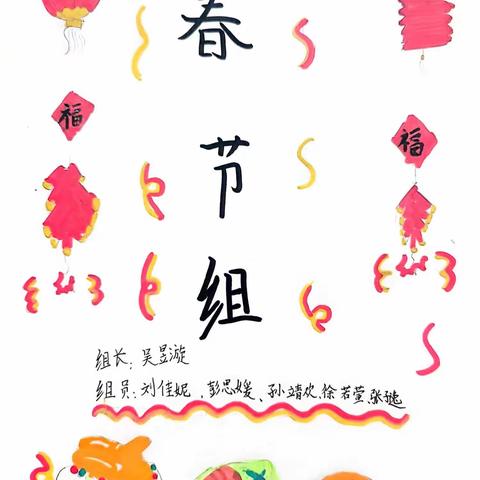 福
福
春
节
组
组长:吴昱漩
组员:刘佳妮、彭思媛、孙靖欢、徐若萱、张